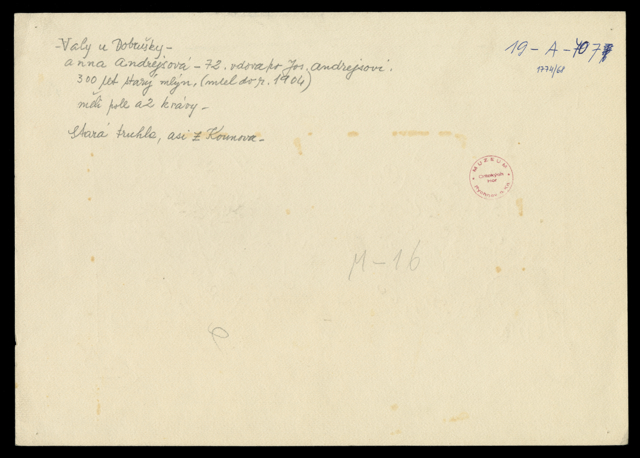 -Valy u Dobrušky-
anna Andrejsová - 72. vdova po Jos. Andrejsovi.
300 let starý mlýn, (mlel do r. 1904)
měli pole a 2 krávy -
Stará truhla, asi z Kounova -
19 - A -
1774/61
MUZEUM
M - 16